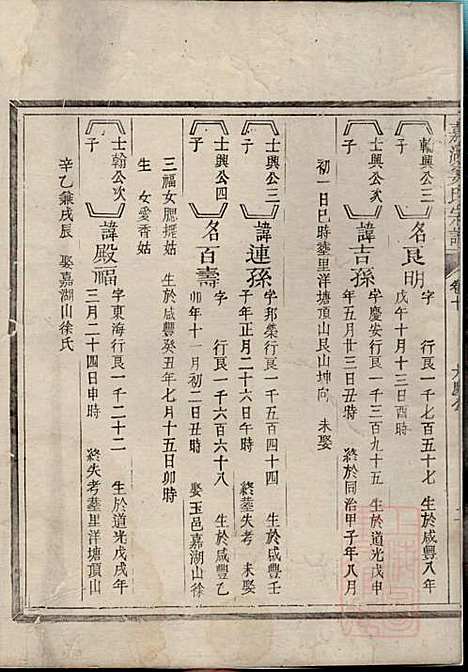 嘉湖
氏宗譜
卷十
軼興公三子
名良明
字　行良一千七百五十七　生於咸豐八年
戊午十月十三日酉時
士興公次子
諱吉孫
字慶安行良一千三百九十五　生於道光戊申
年五月廿三日寅時　終於同治甲子年八月
初一日巳時塟里洋塘頂山艮山坤向　未娶
士興公三子
諱連孫
字邦榮行良一千五百四十四　生於咸豐壬
子年正月二十六日午時　終塟失考　未娶
士興公四子
名百壽
字　行良一千六百六十八　生於咸豐乙
卯年十一月初二日丑時　娶玉邑嘉湖山徐
三福女腮採姑　生於咸豐癸丑年七月十五日卯時
生　女愛香姑
士翰公次子
諱殿福
字東海行良一千二十二　生於道光戊戌年
三月二十四日申時　終失考塟里洋塘頂山
辛乙兼戌辰　娶嘉湖山徐氏